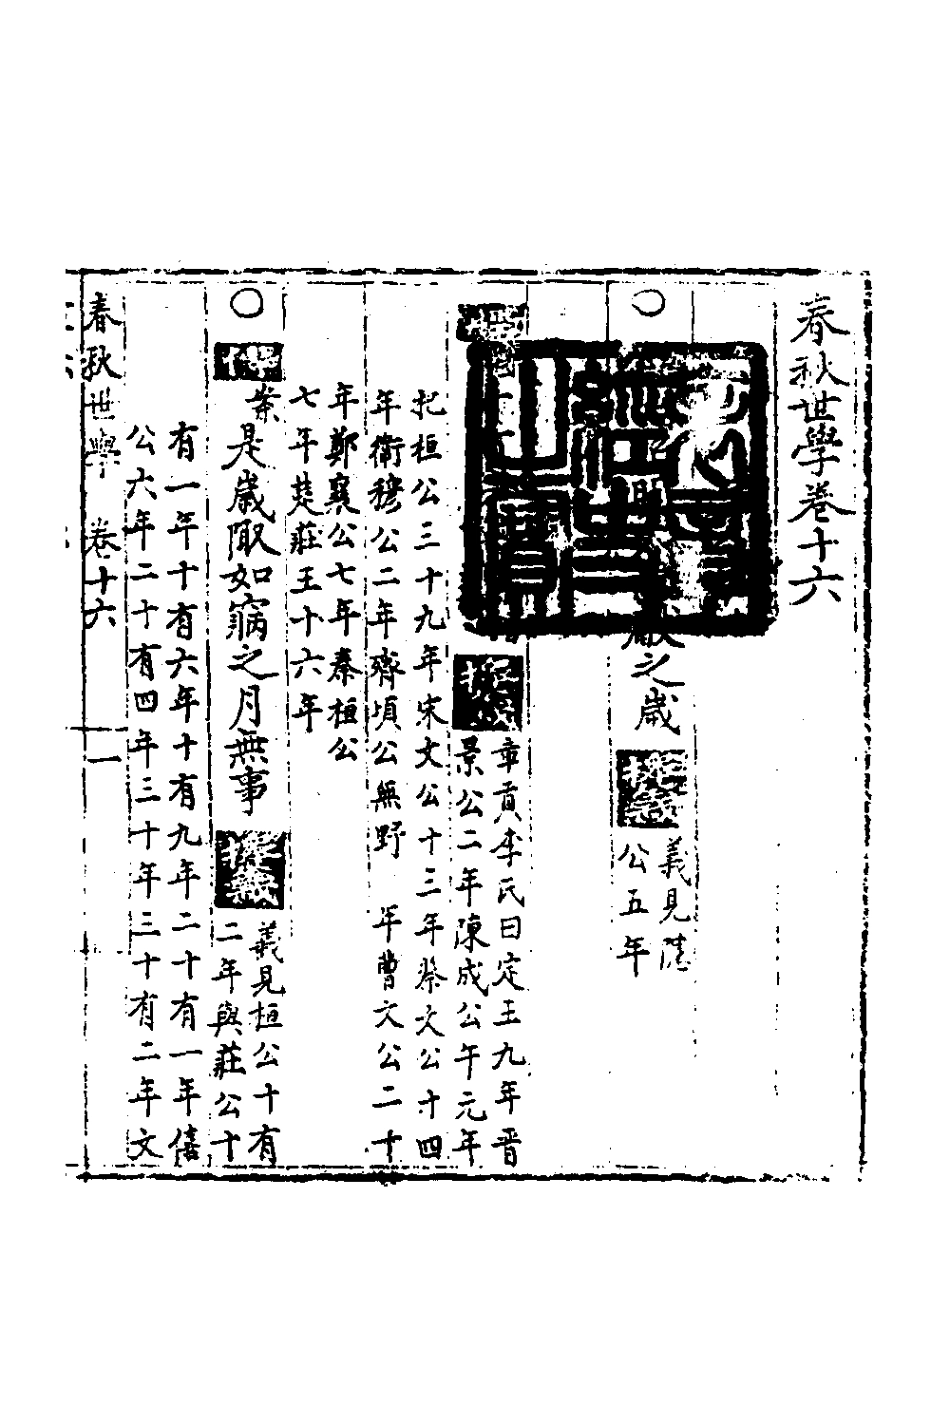 春秋世學卷十六
○
之歲
義見隱
公五年
章貢李氏曰定王九年晋
景公二年陳成公午元年
杞桓公三十九年宋文公十三年蔡文公十四
年衛穆公二年齊頃公無野 年曹文公二十
年鄭襄公七年秦桓公
七年楚莊王十六年
○
案是歲陬如窉之月無事
義見桓公十有
二年與莊公十
有一年十有六年十有九年二十有一年僖
公六年二十有四年三十年三十有二年文
春秋世學 卷十六
一